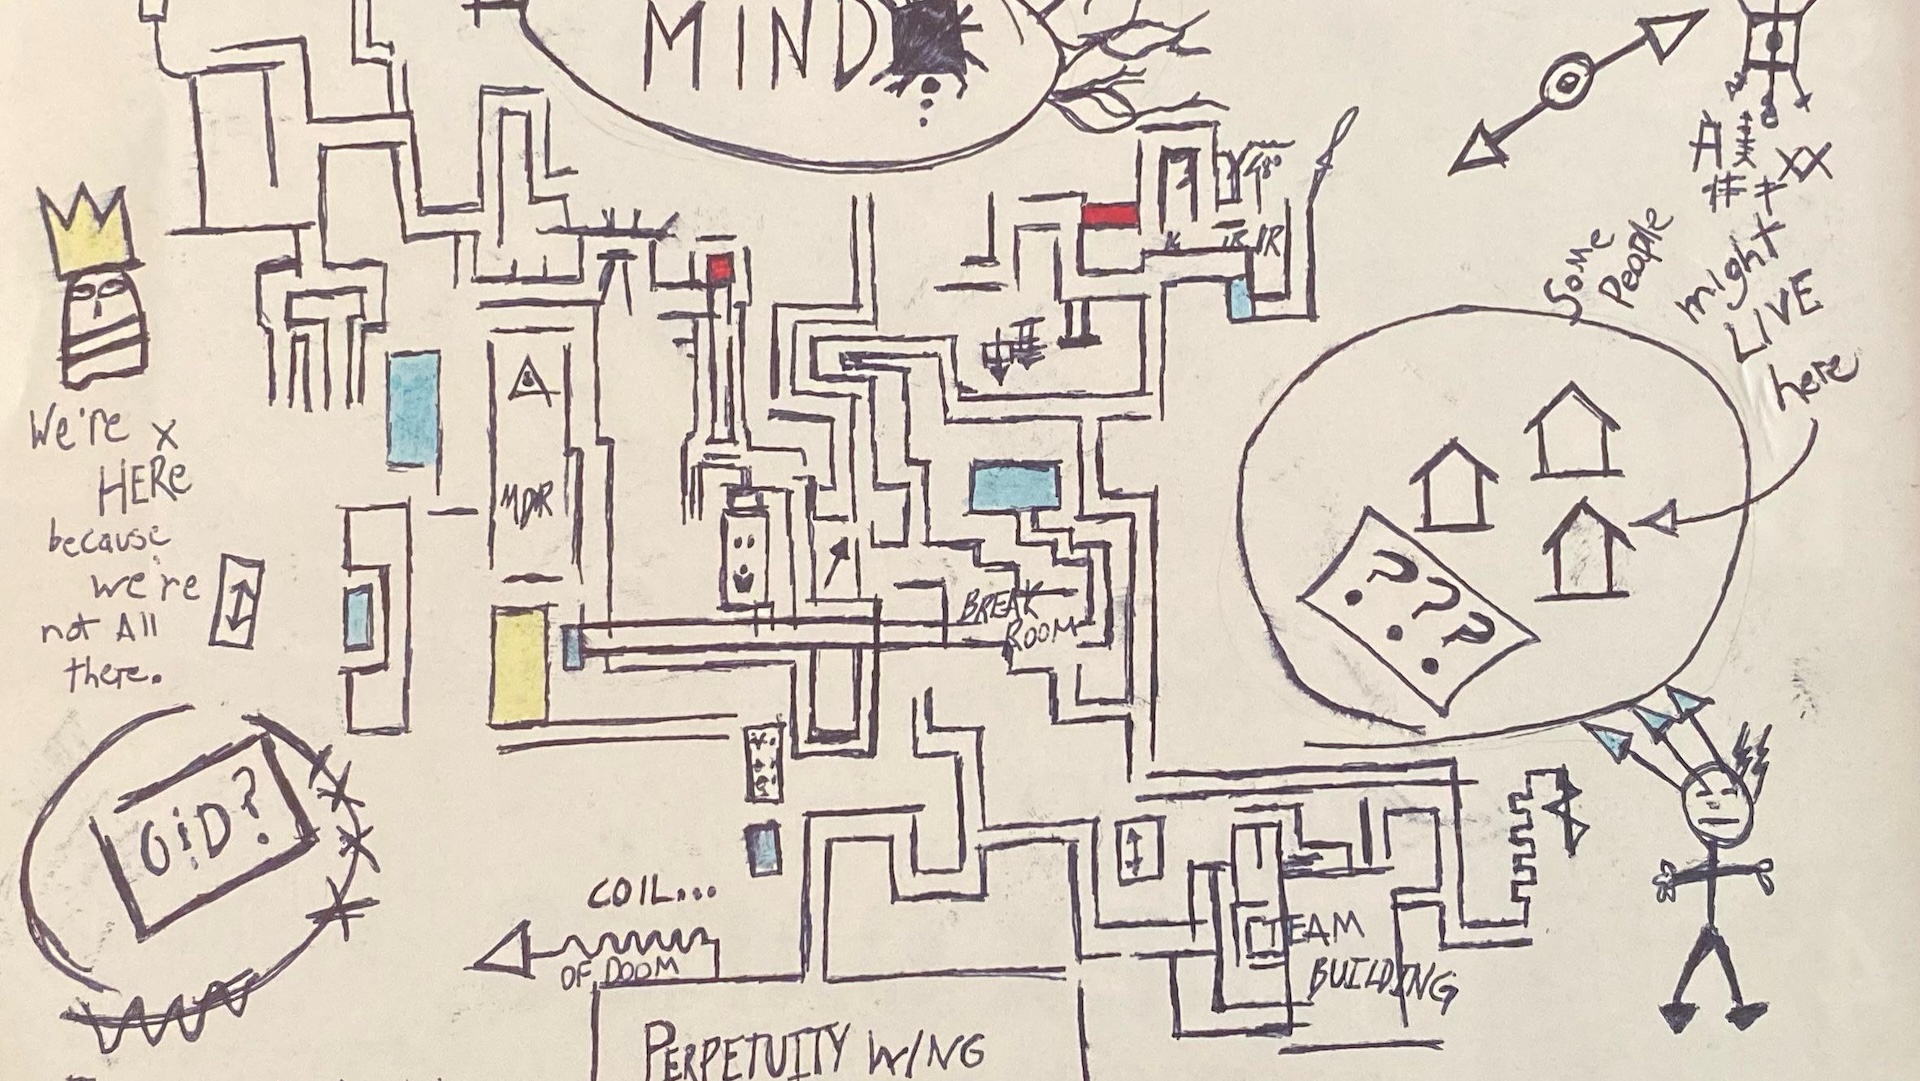 MIND
SOME
PEOPLE
might
LIVE
here
We're
HERE
because
we're
not All
there.
MDR
BREAK
ROOM
???
GiD?
COIL...
OF DOOM
TEAM
BUILDING
PERPETUITY WING